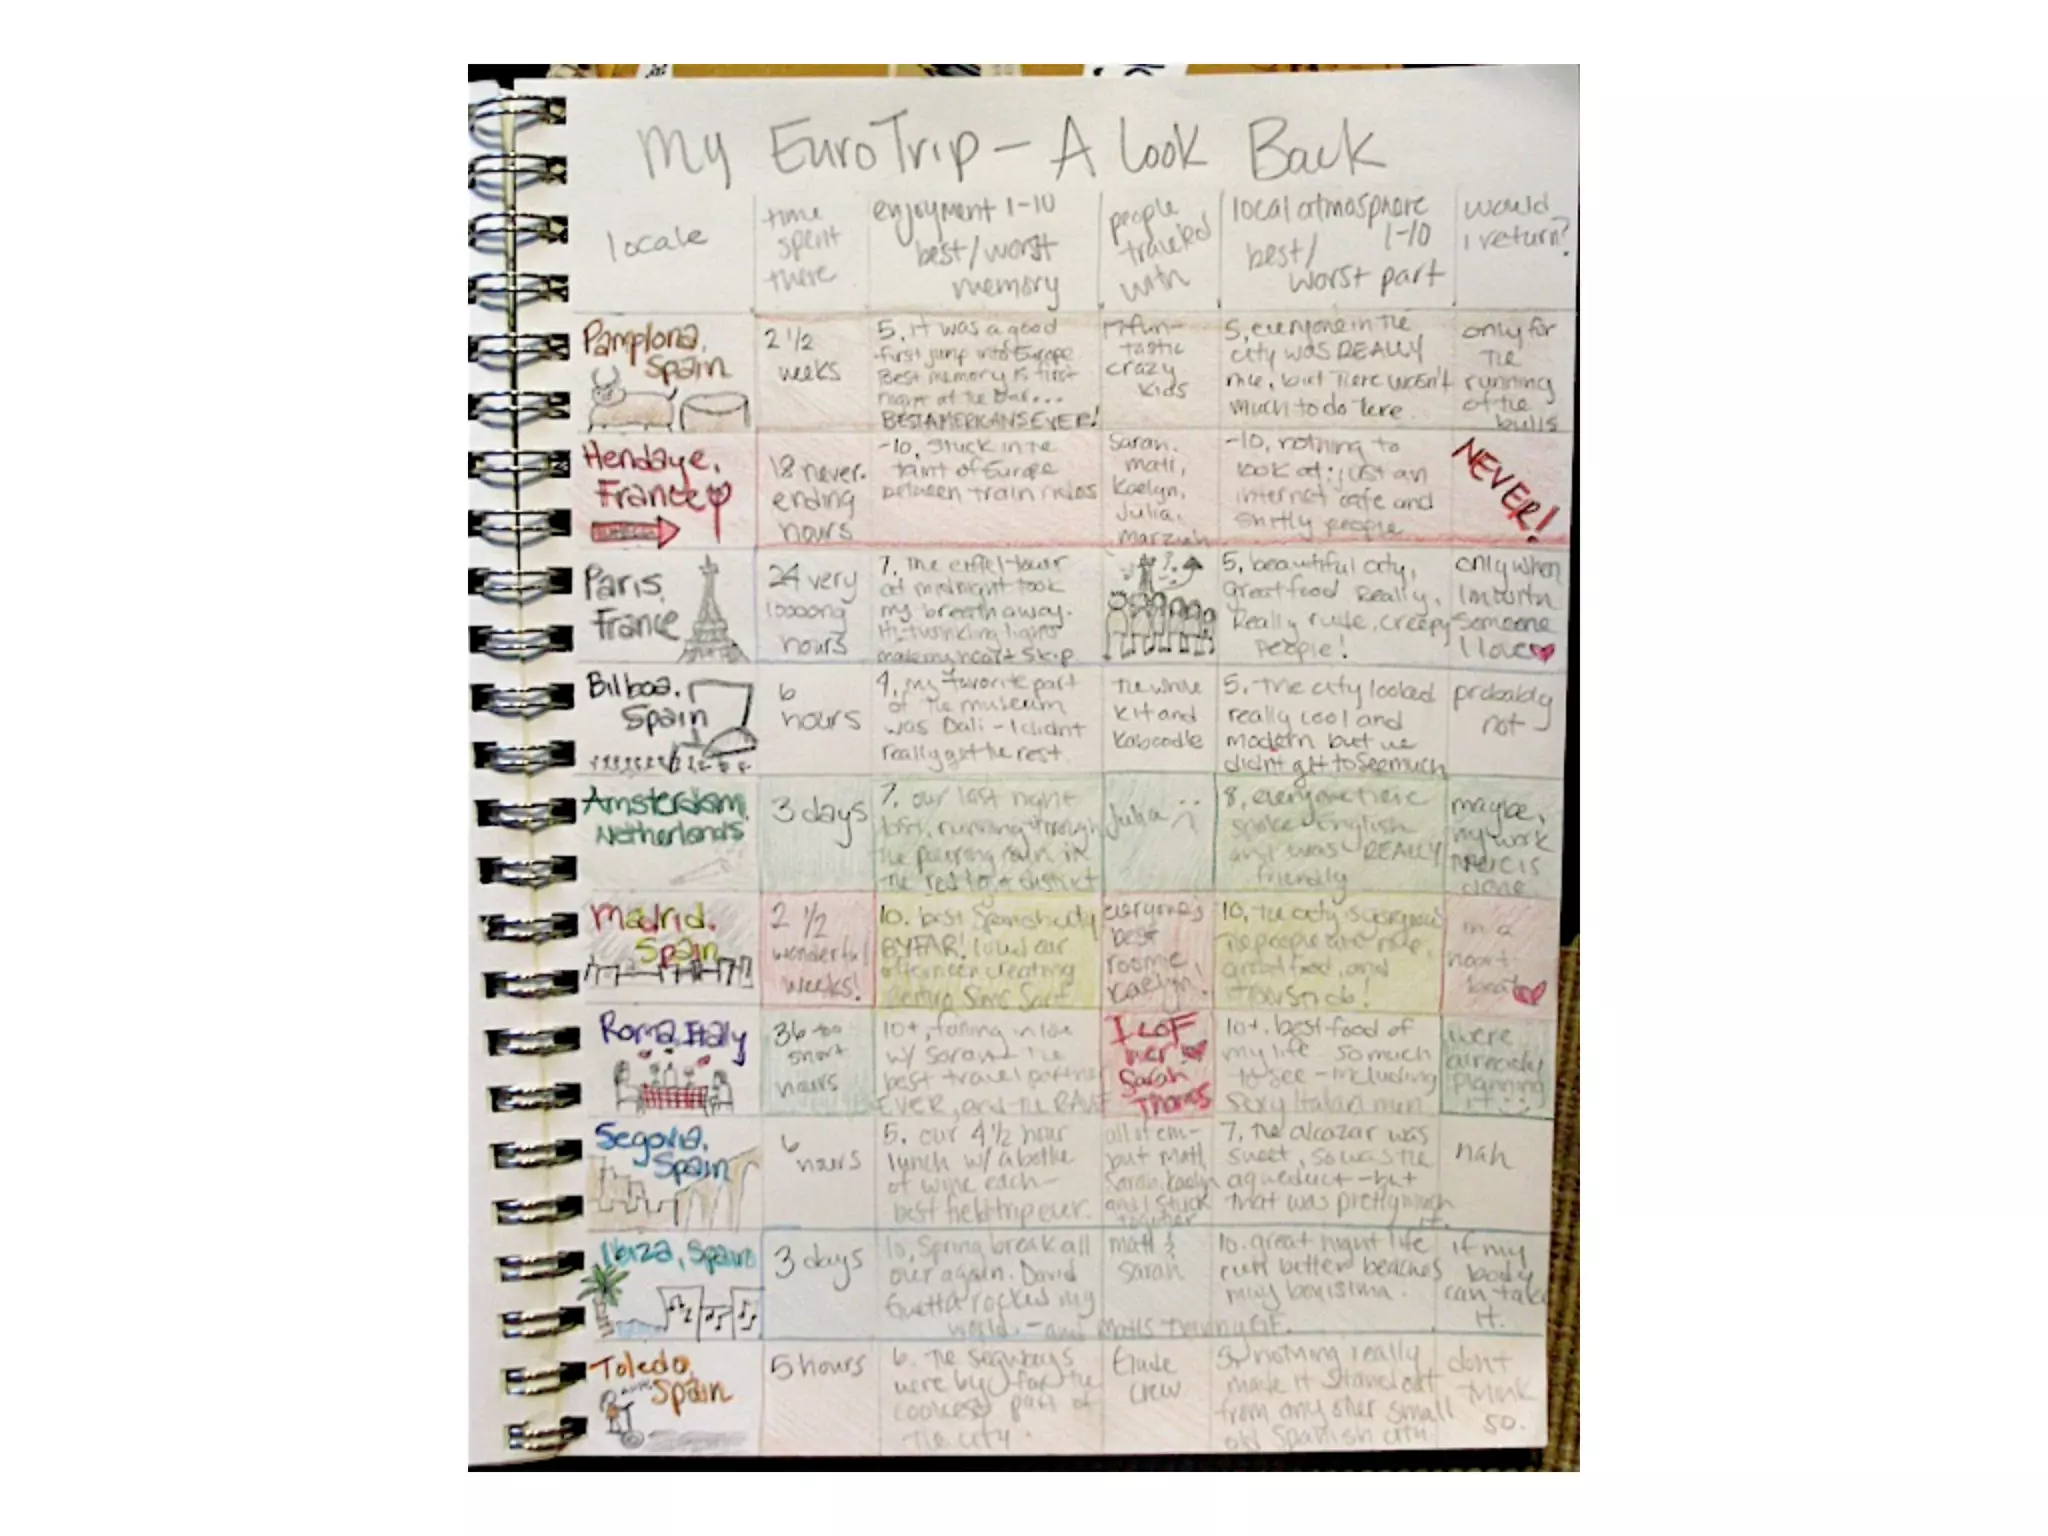 My EuroTrip – A Look Back
locale
time
spent
there
enjoyment 1-10
best/worst
memory
people
traveled
with
local atmosphere
1-10
best/
worst part
would
I return?
Pamplona,
Spain
2 1/2
weeks
5, it was a good
first jump into Europe
Best memory is first
night at the bar...
BEST AMERICANS EVER!
17 fun-
tastic
crazy
kids
5, everyone in the
city was REALLY
nice, but there wasn't
much to do here
only for
the
running
of the
bulls
Hendaye,
France
18 never-
ending
hours
-10, stuck in the
taint of Europe
between train rides
Sarah,
Matt,
Kaelyn,
Julia,
Marziah
-10, nothing to
look at; just an
internet cafe and
shitty people
NEVER!
Paris,
France
24 very
looooong
hours
7, the eiffel tower
at midnight took
my breath away.
twinkling lights
made my heart skip
5, beautiful city,
great food Really,
Really rude, creepy
people!
only when
I'm with
someone
I love
Bilboa,
Spain
6
hours
4, my favorite part
of the museum
was Dali - I didnt
really get the rest
the whole
kit and
kaboodle
5, the city looked
really cool and
modern but we
didn't get to see much
probably
not
Amsterdam,
Netherlands
3 days
7, our last night
lost, running through
the pouring rain in
the red light district
Julia :)
8, everyone here
spoke English
and was REALLY
friendly
maybe,
my work
there is
done
Madrid,
Spain
2 1/2
wonderful
weeks!
10. best Spanish city
BY FAR! loved our
afternoon creating
everyone's
best
roomie
Kaelyn!
10, the city is gorgeous
the people are nice,
great food, and
in a
heart-
beat
Roma, Italy
36 too
short
hours
10+, falling in love
w/ Sarah - the
best travel partner
EVER, and the RAVE
I LOF
her
Sarah
Thomas
10+, best food of
my life so much
to see - including
sexy Italian men
we're
already
planning
it :)
Segovia,
Spain
6
hours
5, our 4 1/2 hour
lunch w/ a bottle
of wine each -
best field trip ever.
all of em-
but Matt,
Sarah, Kaelyn
and I stuck
together
7, the alcazar was
sweet, so was the
aqueduct - but
that was pretty much
it.
nah
Ibiza, Spain
3 days
10, Spring break all
over again. David
Guetta rocked my
world. - and Matts GF.
Matt &
Sarah
10. great night life
even better beaches
muy bonisima.
if my
body
can take
it.
Toledo,
Spain
5 hours
6. the segways
were by far the
coolest part of
the city.
Entire
crew
5, nothing really
made it stand out
from any other small
old Spanish city.
don't
think
so.